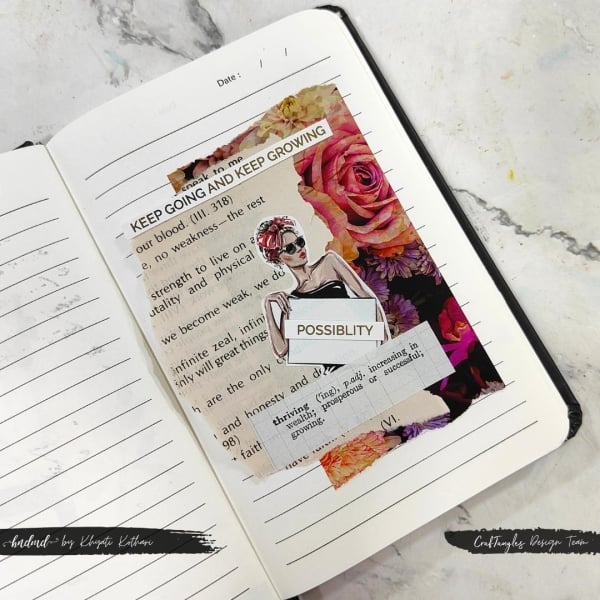 Date : / /
KEEP GOING AND KEEP GROWING
speak to me
our blood. (III. 318)
e, no weakness—the rest
strength to live on a
utality and physical
we become weak, we do
infinite zeal, infini
only will great things
h are the only
and honesty and d
98)
faith
have
(VI.
POSSIBLITY
thriving ('ing), p.adj, increasing in
wealth; prosperous or successful;
growing.
hndmd by Khyati Kothari
CrafTangles Design Team